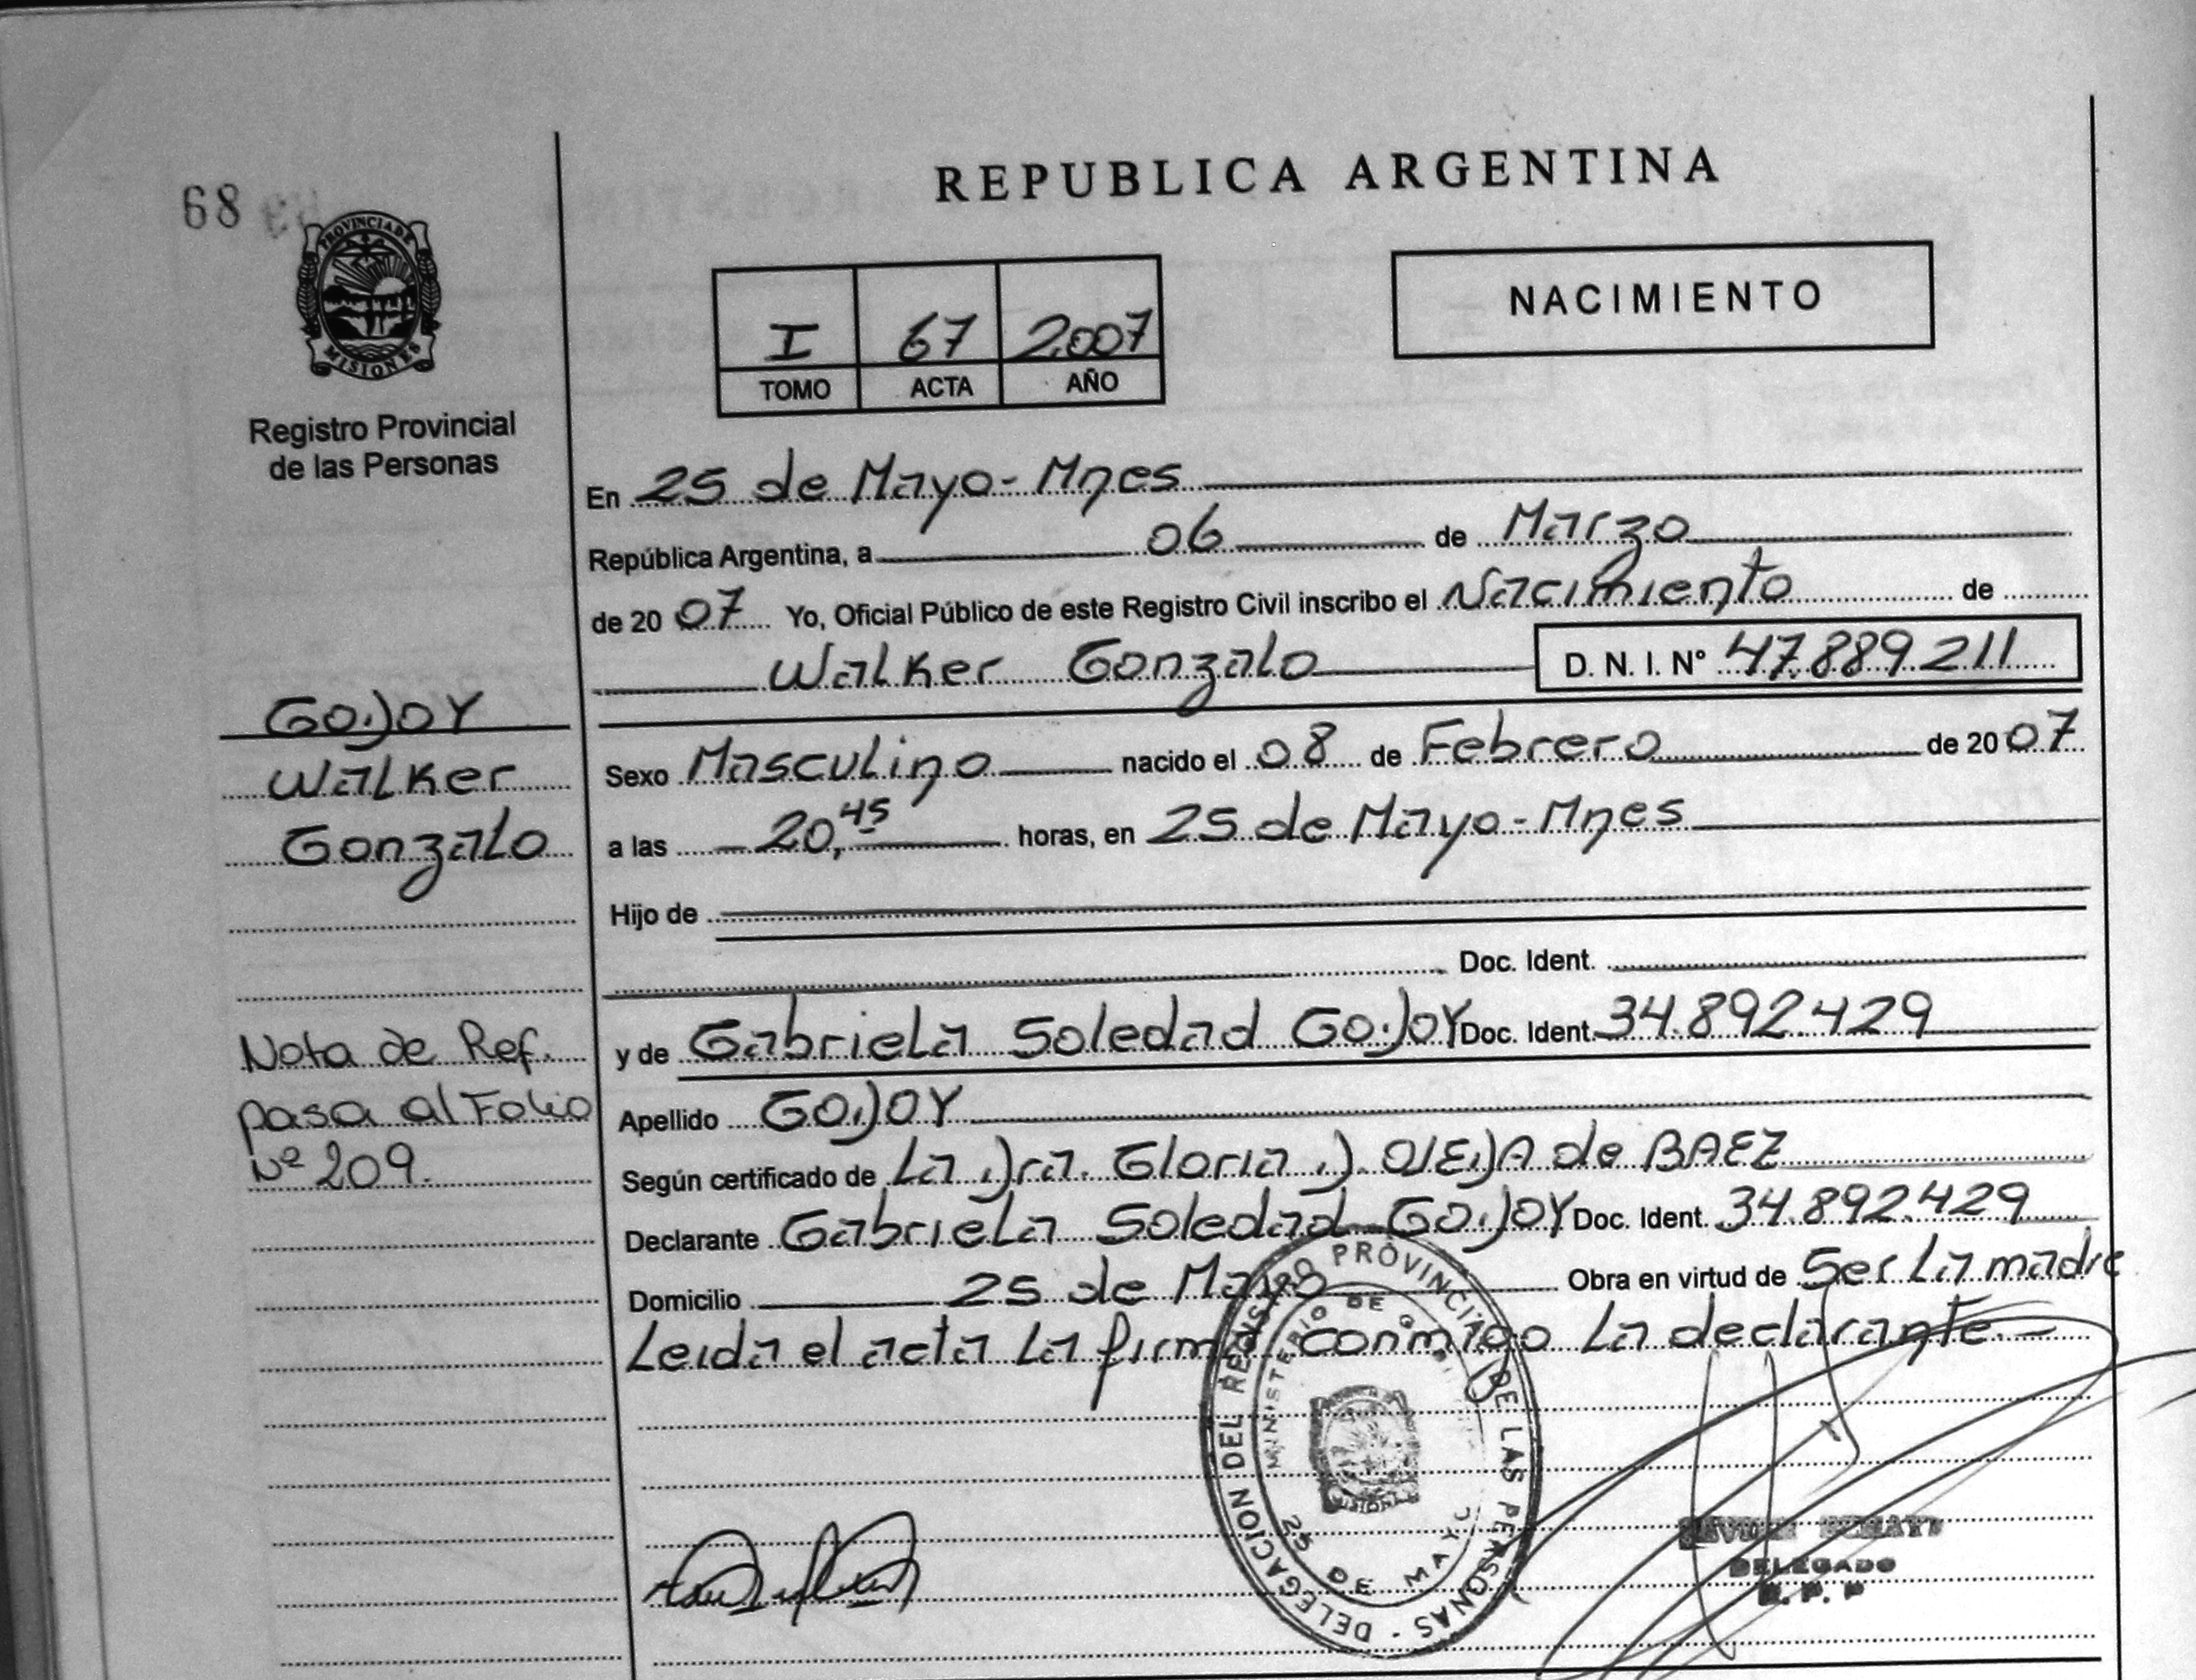 REPUBLICA ARGENTINA
68
PROVINCIA DE
MISIONES
Registro Provincial
de las Personas
I 67 2.007
TOMO ACTA AÑO
NACIMIENTO
En 25 de Mayo - Mnes
República Argentina, a 06 de Marzo
de 2007 Yo, Oficial Público de este Registro Civil inscribo el Nacimiento de
Walker Gonzalo D. N. I. Nº 47.889.211
GODOY
Walker
Gonzalo
Sexo Masculino nacido el 08 de Febrero de 2007
a las 20,45 horas, en 25 de Mayo - Mnes
Hijo de
Doc. Ident.
y de Gabriela Soledad GODOY Doc. Ident. 34.892.429
Nota de Ref.
pasa al Folio
Nº 209.
Apellido GODOY
Según certificado de La Dra. Gloria D. OJEDA de BAEZ
Declarante Gabriela Soledad GODOY Doc. Ident. 34.892.429
Domicilio 25 de Mayo Obra en virtud de Ser La madre
Leida el acta La firma conmigo La declarante.-
DELEGACION DEL REGISTRO PROVINCIAL DE LAS PERSONAS -
MINISTERIO DE GOBI
25 DE MAYO
MISIONES
DELEGADO
R. P. P